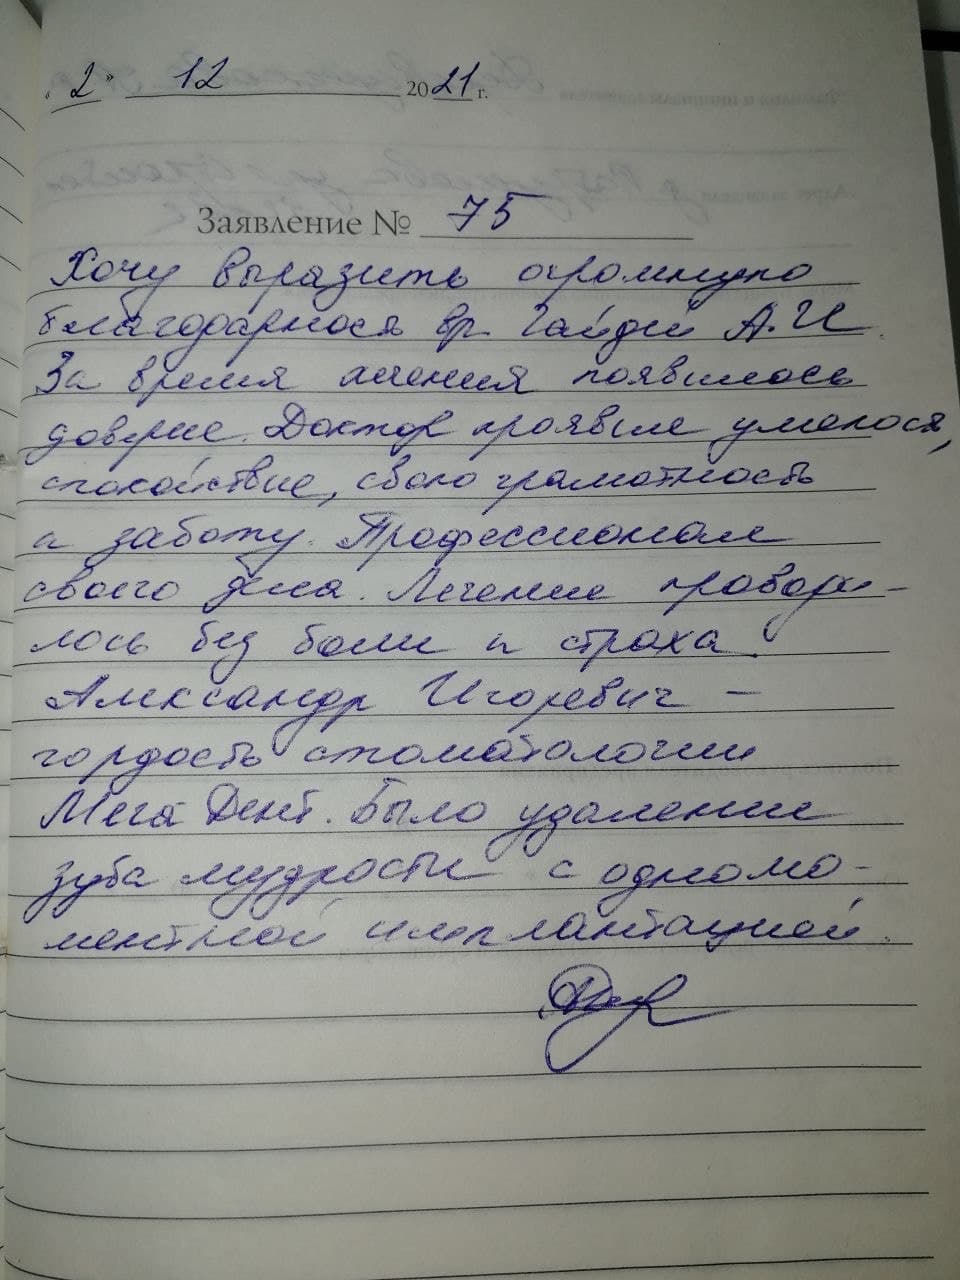 « 2 » 12 2021 г.
Заявление № 75
Хочу выразить огромную
благодарность вр. Гайдей А.И.
За время лечения появилось
доверие. Доктор проявил умелось,
спокойствие, свою грамотность
и заботу. Профессионал
своего дела. Лечение проводи-
лось без боли и страха.
Александр Игоревич –
гордость стоматологии
Мега Дент. Было удаление
зуба мудрости с одномо-
ментной имплантацией.